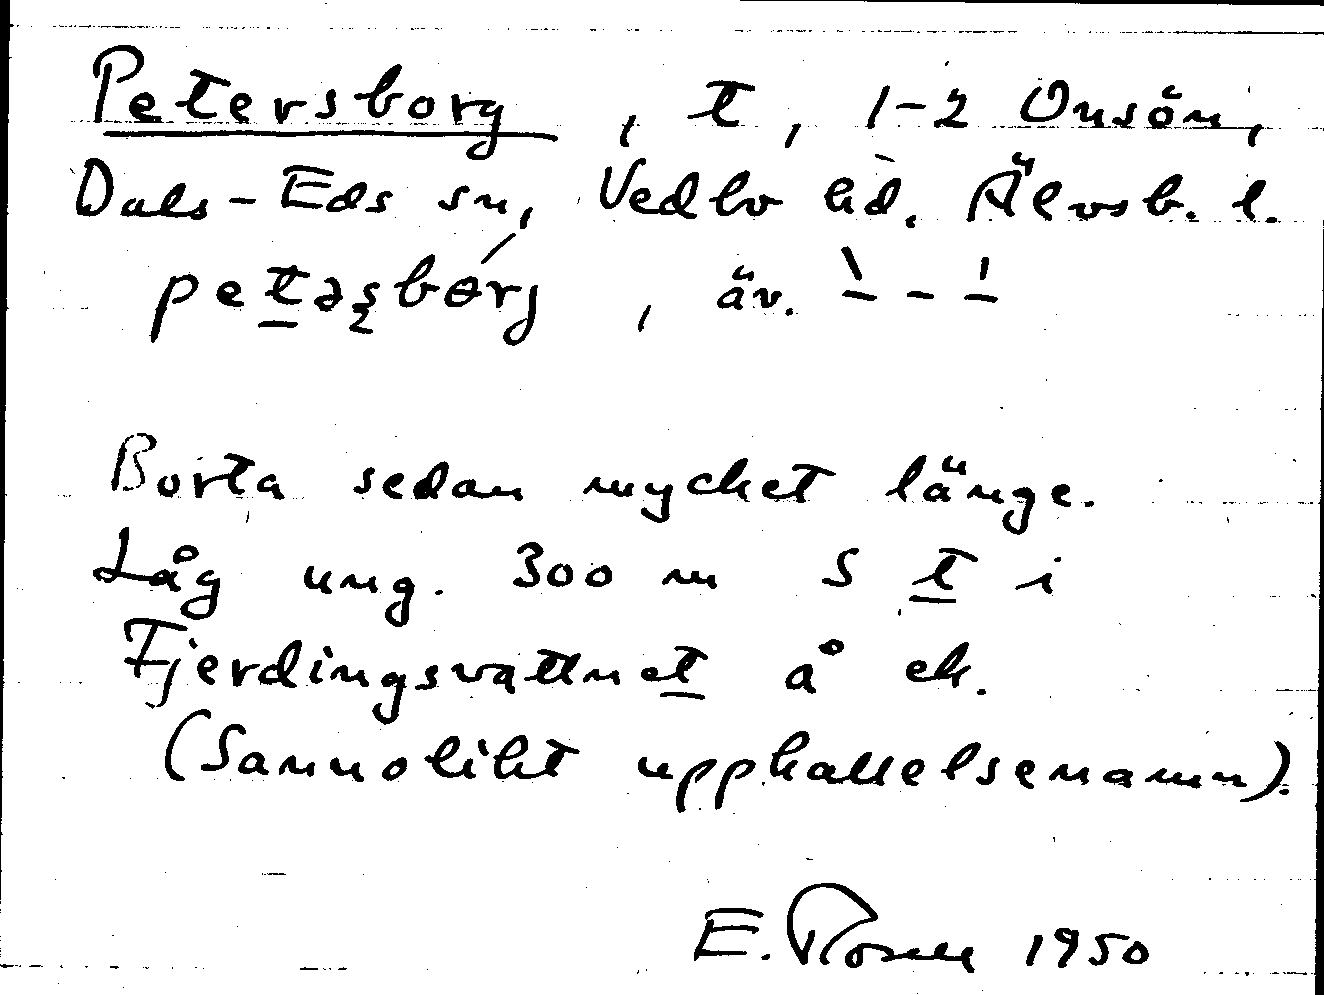 Petersborg, t, 1-2 Onsön,
Dals-Eds sn, Vedbo hd. Älvsb. l.
petəʂbɵ́rj, äv. `- - '-
Borta sedan mycket länge.
Låg ung. 300 m S t i
Fjerdingsvattnet å ek.
(Sannolikt uppkallelsenamn).
E. Rosell 1950